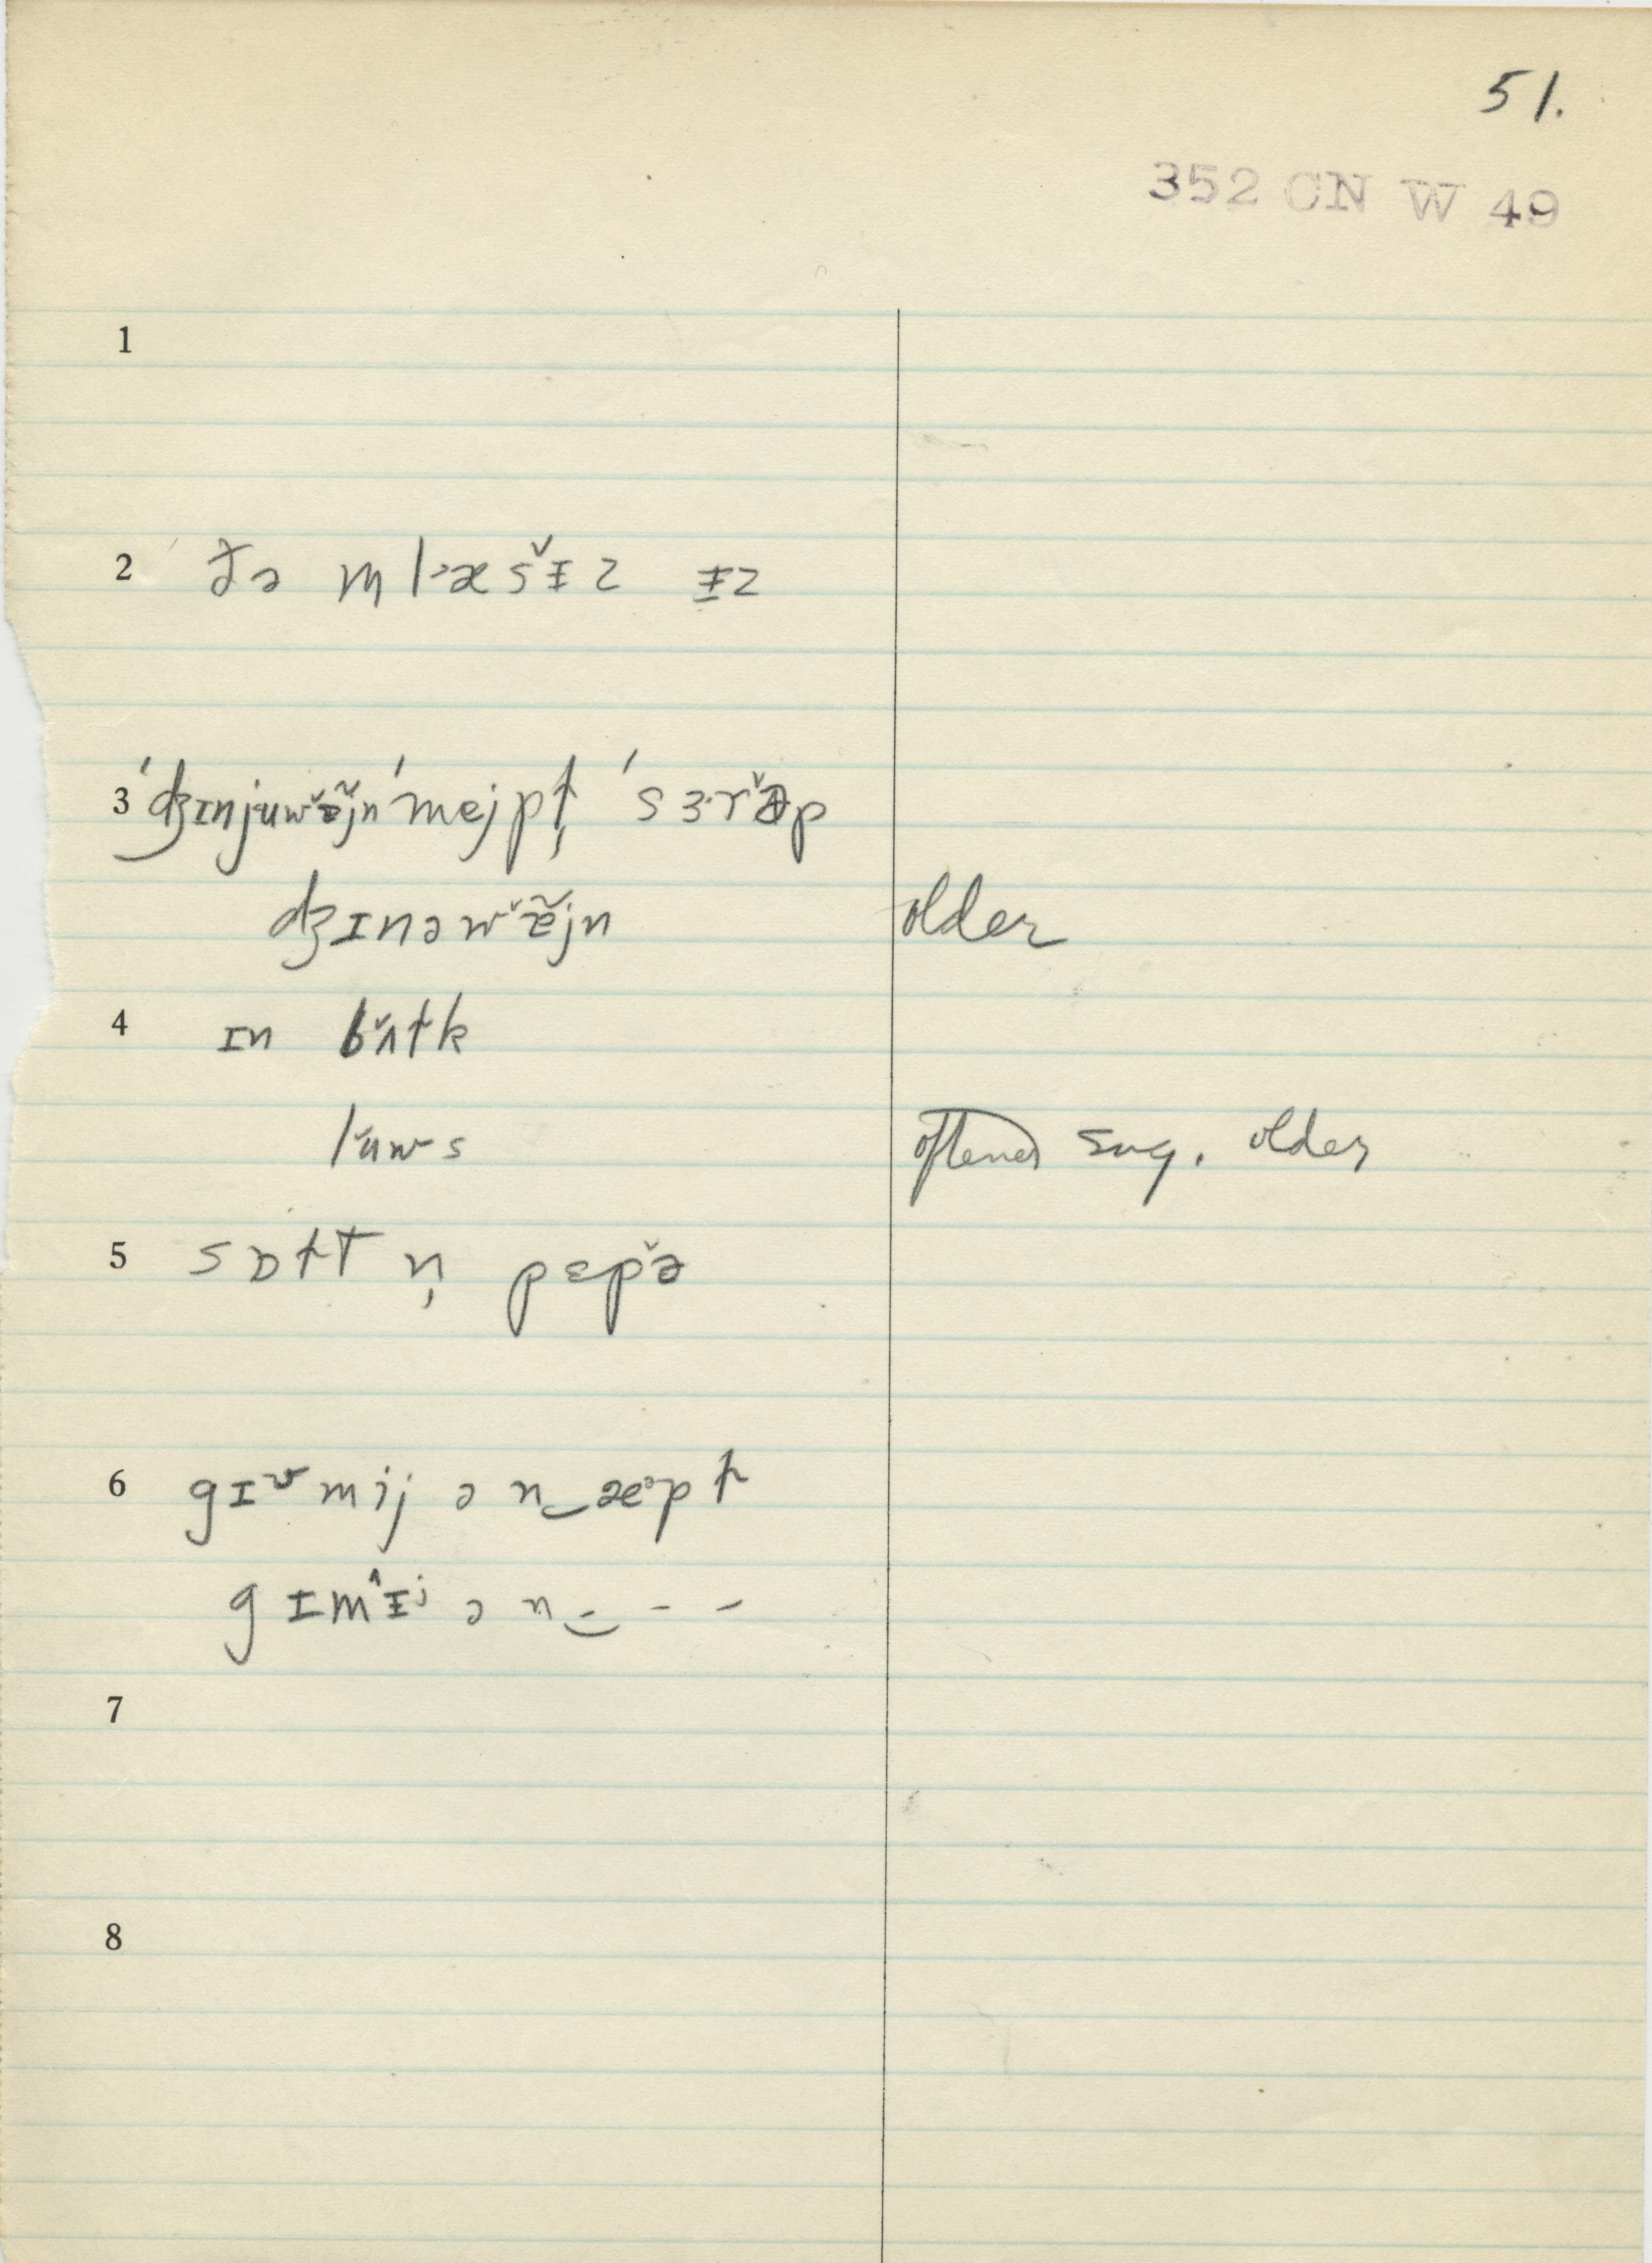 51.
352 CN W 49
1
2 ðə mlˑæsˇɪz ɪz
3 ˈdʒɪnjuwˇɛ̃jn ˈmejpɫ̩ ˈsɜˑrˇəp
dʒɪnəwˇɛ̃jn older
4 ɪn bˇʌɫk
lˇuws oftener sug. older
5 sɒɫt n̩ pɛpˇə
6 gɪᵛmij ə n‿æˑpɫ
gɪmˆɪʲ ə n‿- - -
7
8